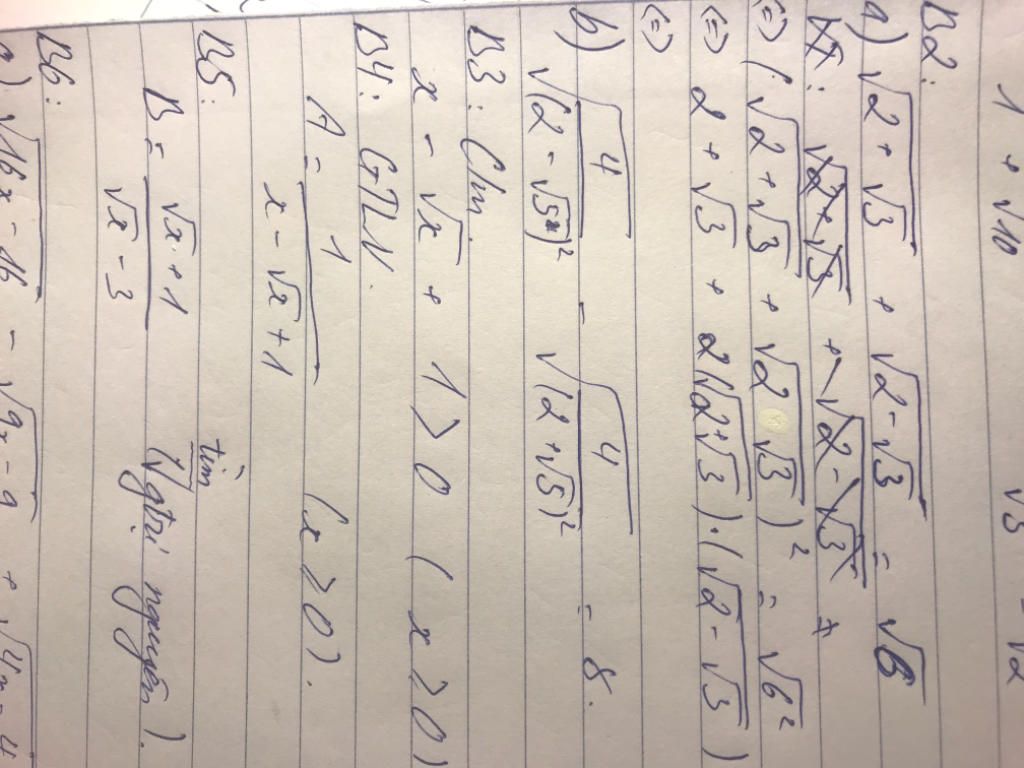 1 + √10 √3 - √2
B2:
a) √(2+√3) + √(2-√3) = √6
(=) (√(2+√3) + √(2 √3))² = √6²
(=) 2 + √3 + 2(√(2+√3)).(√(2-√3))
(=)
b) √(4/(2-√5)²) - √(4/(2+√5)²) = 8.
B3: C/m.
x - √x + 1 > 0 (x ≥ 0)
B4: GTLN.
A = 1/(x - √x + 1) (x ≥ 0).
B5: tìm
B = (√x + 1)/(√x - 3) gtrị nguyên).
B6:
a) √(16x-16) - √(9x-9) + √(4x-4)